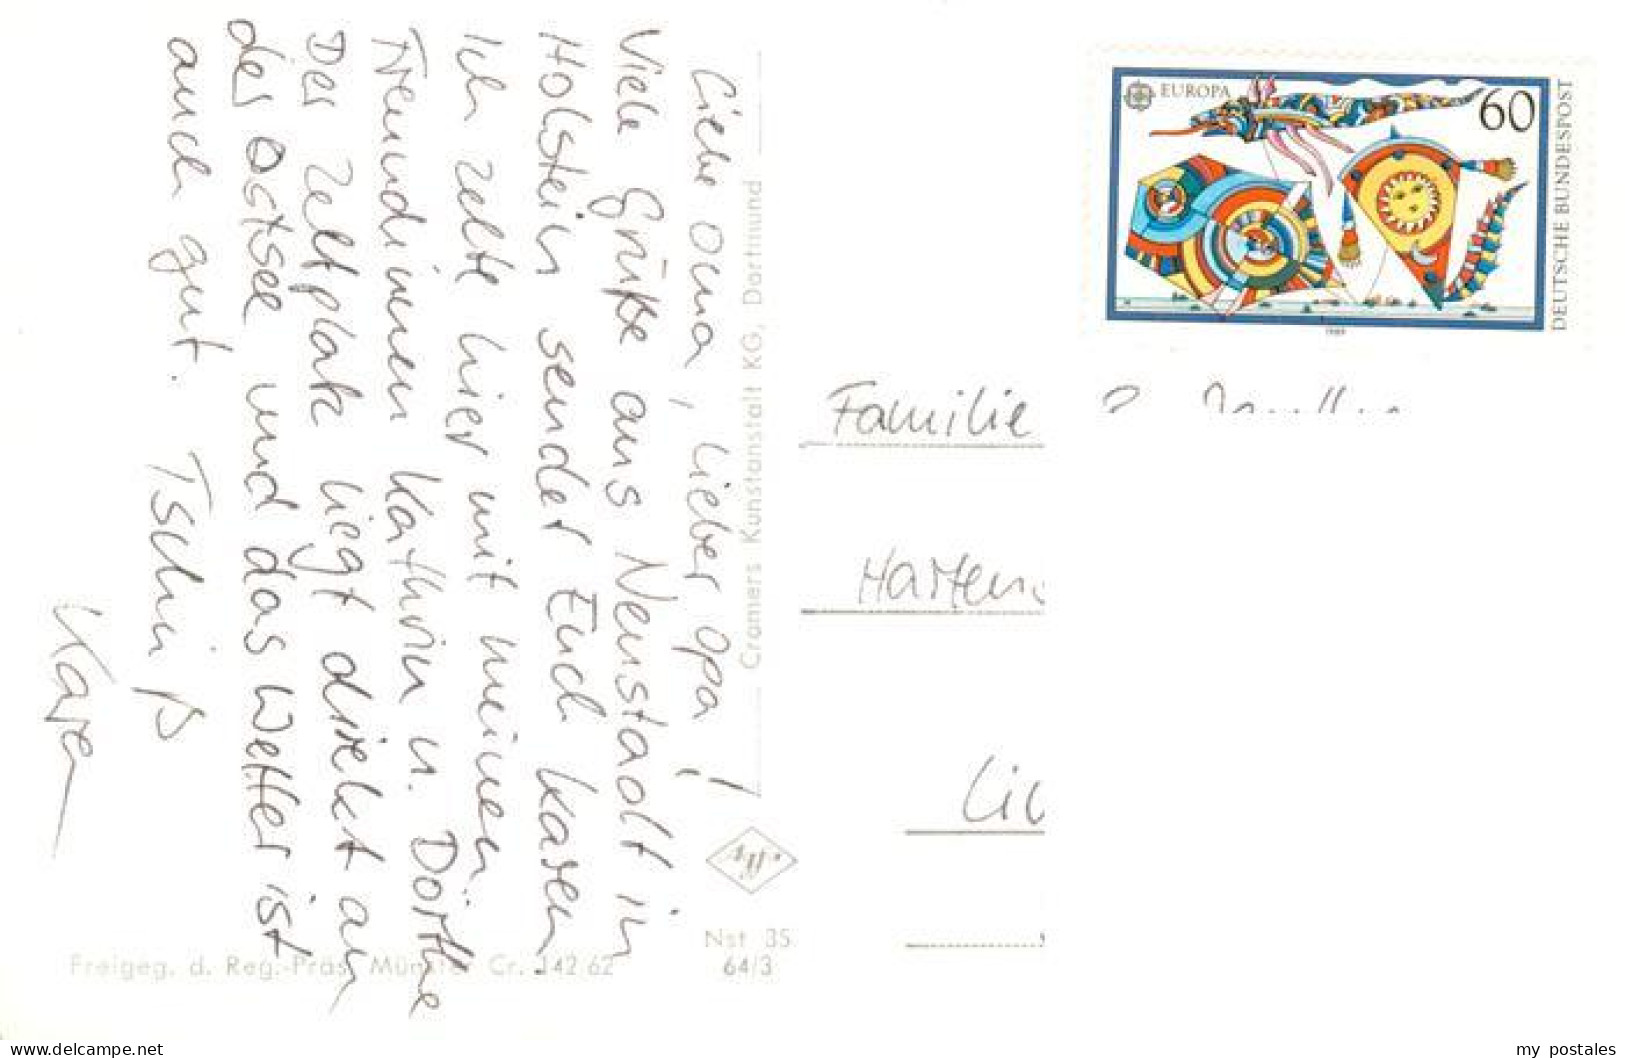 Liebe Oma, lieber Opa!
Viele Grüße aus Neustadt in
Holstein sendet Euch Karen
Ich zelte hier mit meinen
Freundinnen Kathrin u. Dörthe
Der Zeltplatz liegt direkt an
der Ostsee und das Wetter ist
auch gut. Tschüß
Karen
Cramers Kunstanstalt KG, Dortmund
Nst 35
64/3
Freigeg. d. Reg.-Präs. Münster Cr. 142 62
EUROPA
60
DEUTSCHE BUNDESPOST
1989
Familie
www.delcampe.net
my_postales